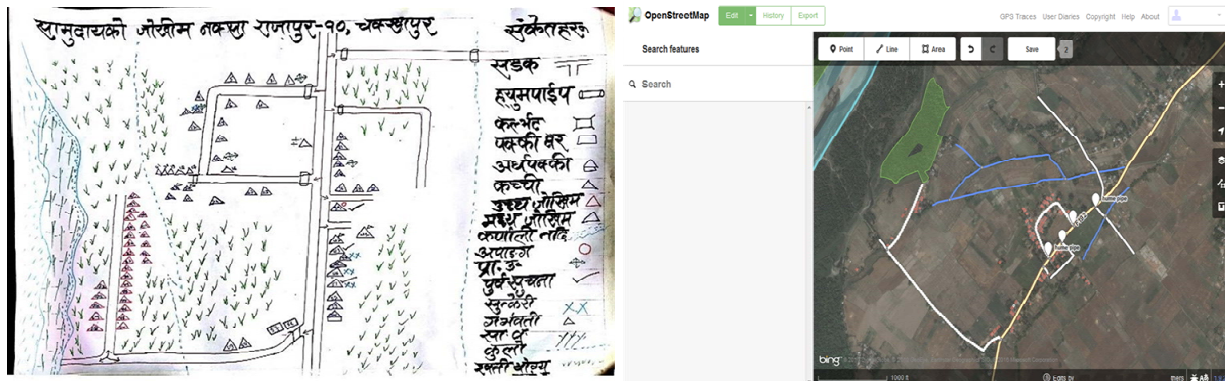 सामुदायको जोखीम नक्शा राजापुर-१०, चकखापुर
संकेतहरु
सडक
ह्युमपाईप
कल्भर्ट
पक्की घर
अर्धपक्की
कच्ची
उच्च जोखिम
मध्य जोखिम
कर्णाली नदि
अपाङ्ग
प्रा. उ
पुर्वसुचना
सुत्केरी
गर्भवती
कुलो
OpenStreetMap
Edit
History
Export
GPS Traces
User Diaries
Copyright
Help
About
Search features
Search
Point
Line
Area
Save
2
hume pipe
hume pipe
bing
1000 ft
Edits by